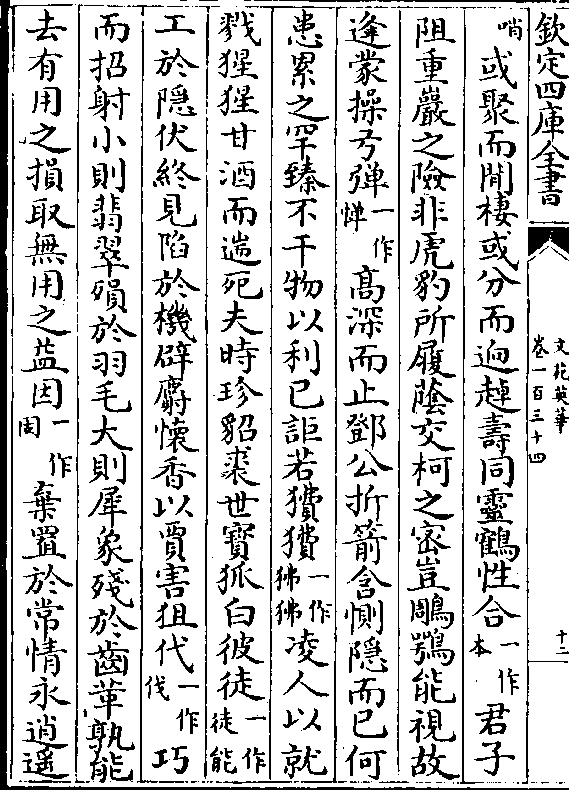 欽定四庫全書
文苑英華
卷一百三十四
十二
哨或聚而閒棲或分而逈趠壽同靈鶴性合一作本君子
阻重巖之險非虎豹所履蔭交柯之密豈鵰鶚能視故
逢蒙操弓彈一作憚高深而止鄧公折箭含惻隠而已何
患累之罕臻不干物以利已詎若一作狒狒凌人以就
戮猩猩甘酒而遄死夫時珍貂裘世寳狐白彼徒一作徒能
工於隠伏終見陷於機辟麝懷香以賈害狙代一作伐巧
而招射小則翡翠殞於羽毛大則犀象殘於齒革孰能
去有用之損取無用之益因一作固棄置於常情永逍遥